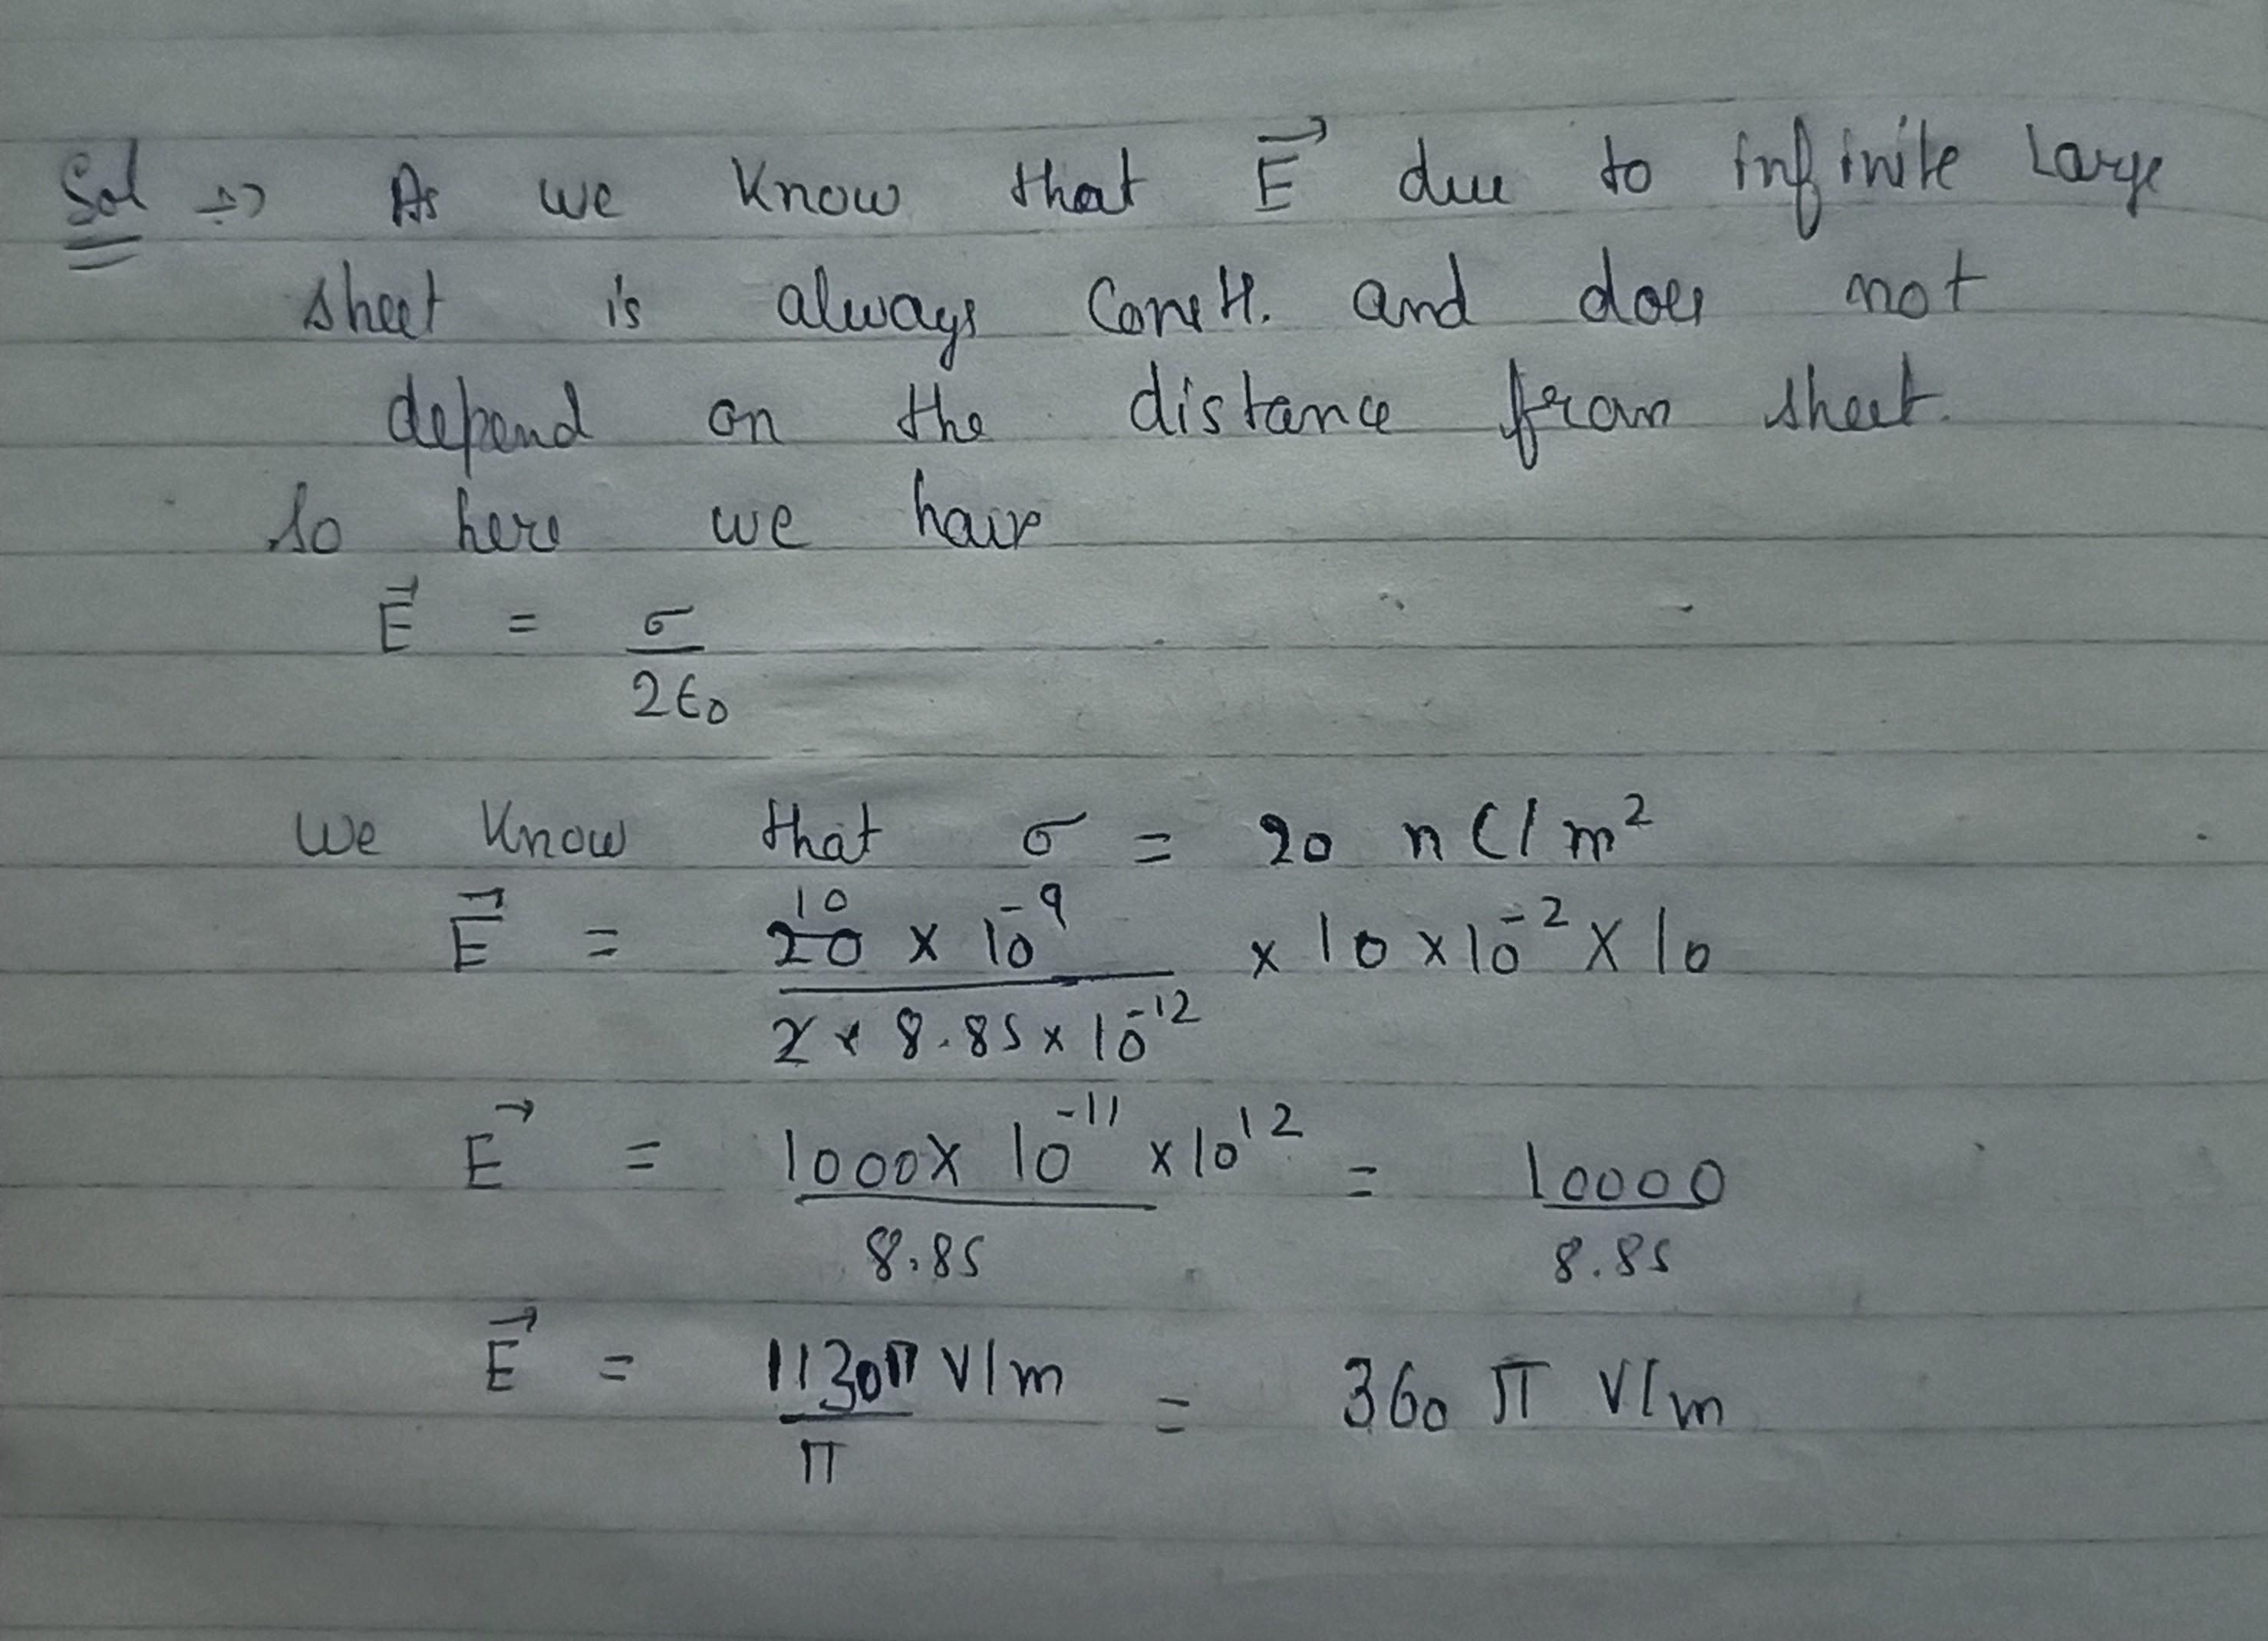 Sol ⇒ As we know that E⃗ due to infinite large
sheet is always constt. and does not
depend on the distance from sheet.
So here we have
E⃗ = σ / 2ϵ₀
We know that σ = 20 nC/m²
E⃗ = 20 10 × 10⁻⁹ / 2 × 8.85 × 10⁻¹² × 10 × 10⁻² × 10
E⃗ = 1000 × 10⁻¹¹ × 10¹² / 8.85 = 10000 / 8.85
E⃗ = 1130π / π V/m = 360 π V/m